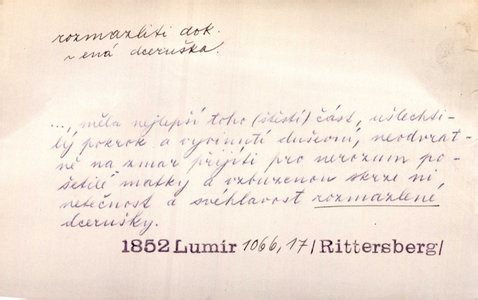 rozmazliti dok.
~ ená dceruška.
..., měla nejlepší toho (štěstí) část, ušlechti-
lý pokrok a vyvinutí duševní, neodvrat-
ně na zmar přijíti pro nerozum po-
šetilé matky a vzbuzenou skrze ni,
netečnost a svéhlavost rozmazlené
dcerušky.
1852 Lumír 1066,17 /Rittersberg/